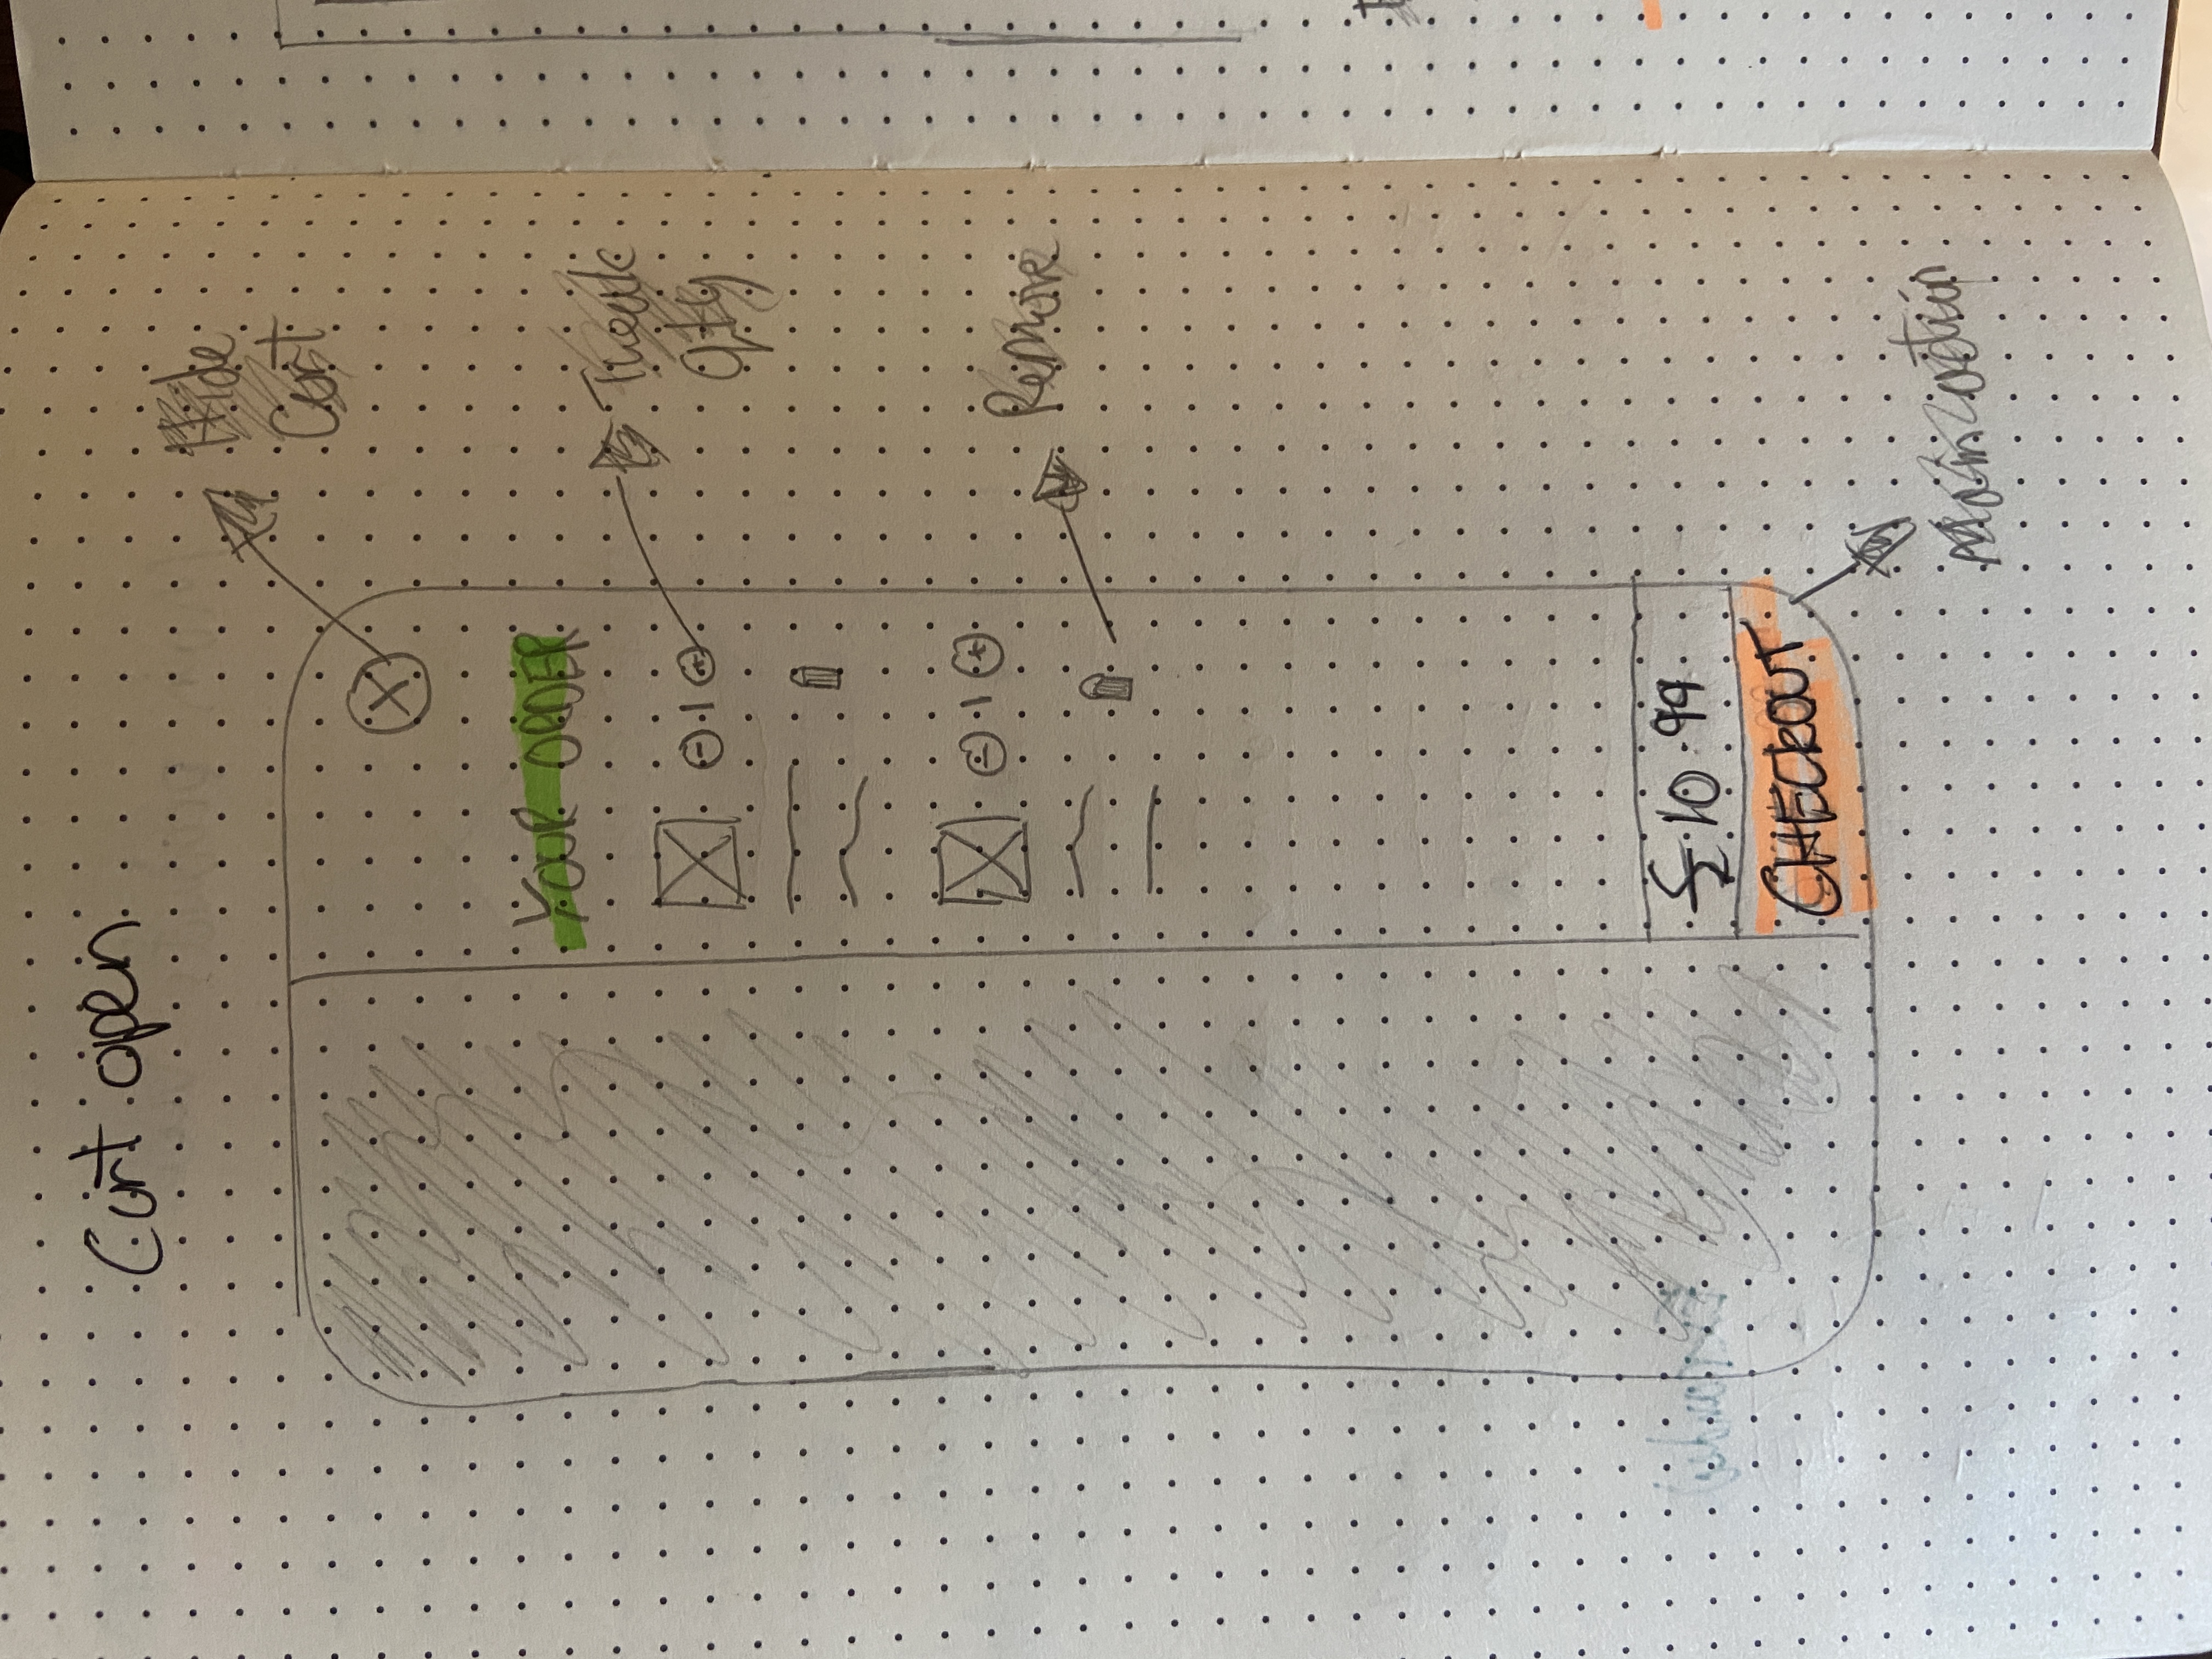 Cart open
Hide
Cart
X
YOUR ORDER
- 1 +
Tweak
qty
- 1 +
Remove
£10.99
CHECKOUT
Main action